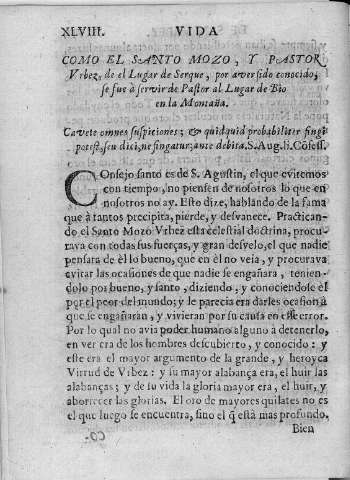 XLVIII. VIDA
COMO EL SANTO MOZO, Y PASTOR
Vrbez, de el Lugar de Serque, por aver sido conocido,
se fue à servir de Pastor al Lugar de Bio
en la Montaña.
Cavete omnes suspiciones; & quidquid probabiliter fingi
potest, seu dici, ne fingatur; ante debita. S. Aug. li. Cõfess.
COnsejo santo es de S. Agustin, el que evitemos
con tiempo, no piensen de nosotros lo que en
nosotros no ay. Esto dize, hablando de la fama
que à tantos precipita, pierde, y desvanece. Practican-
do el Santo Mozo Vrbez esta celestial doctrina, procu-
rava con todas sus fuerças, y gran desvelo, el que nadie
pensara de èl lo bueno, que en èl no veía, y procurava
evitar las ocasiones de que nadie se engañara, tenien-
dolo por bueno, y santo, diziendo; y conociendose èl
por el peor del mundo; y le parecia era darles ocasion à
que se engañaran, y vivieran por su causa en este error.
Por lo qual no avia poder humano alguno à detenerlo,
en ver era de los hombres descubierto, y conocido: y
este era el mayor argumento de la grande, y heroyca
Virtud de Vrbez: y su mayor alabança era, el huir las
alabanças; y de su vida la gloria mayor era, el huir, y
aborrecer las glorias. El oro de mayores quilates no es
el que luego se encuentra, sino el q̃ està mas profundo.
Bien